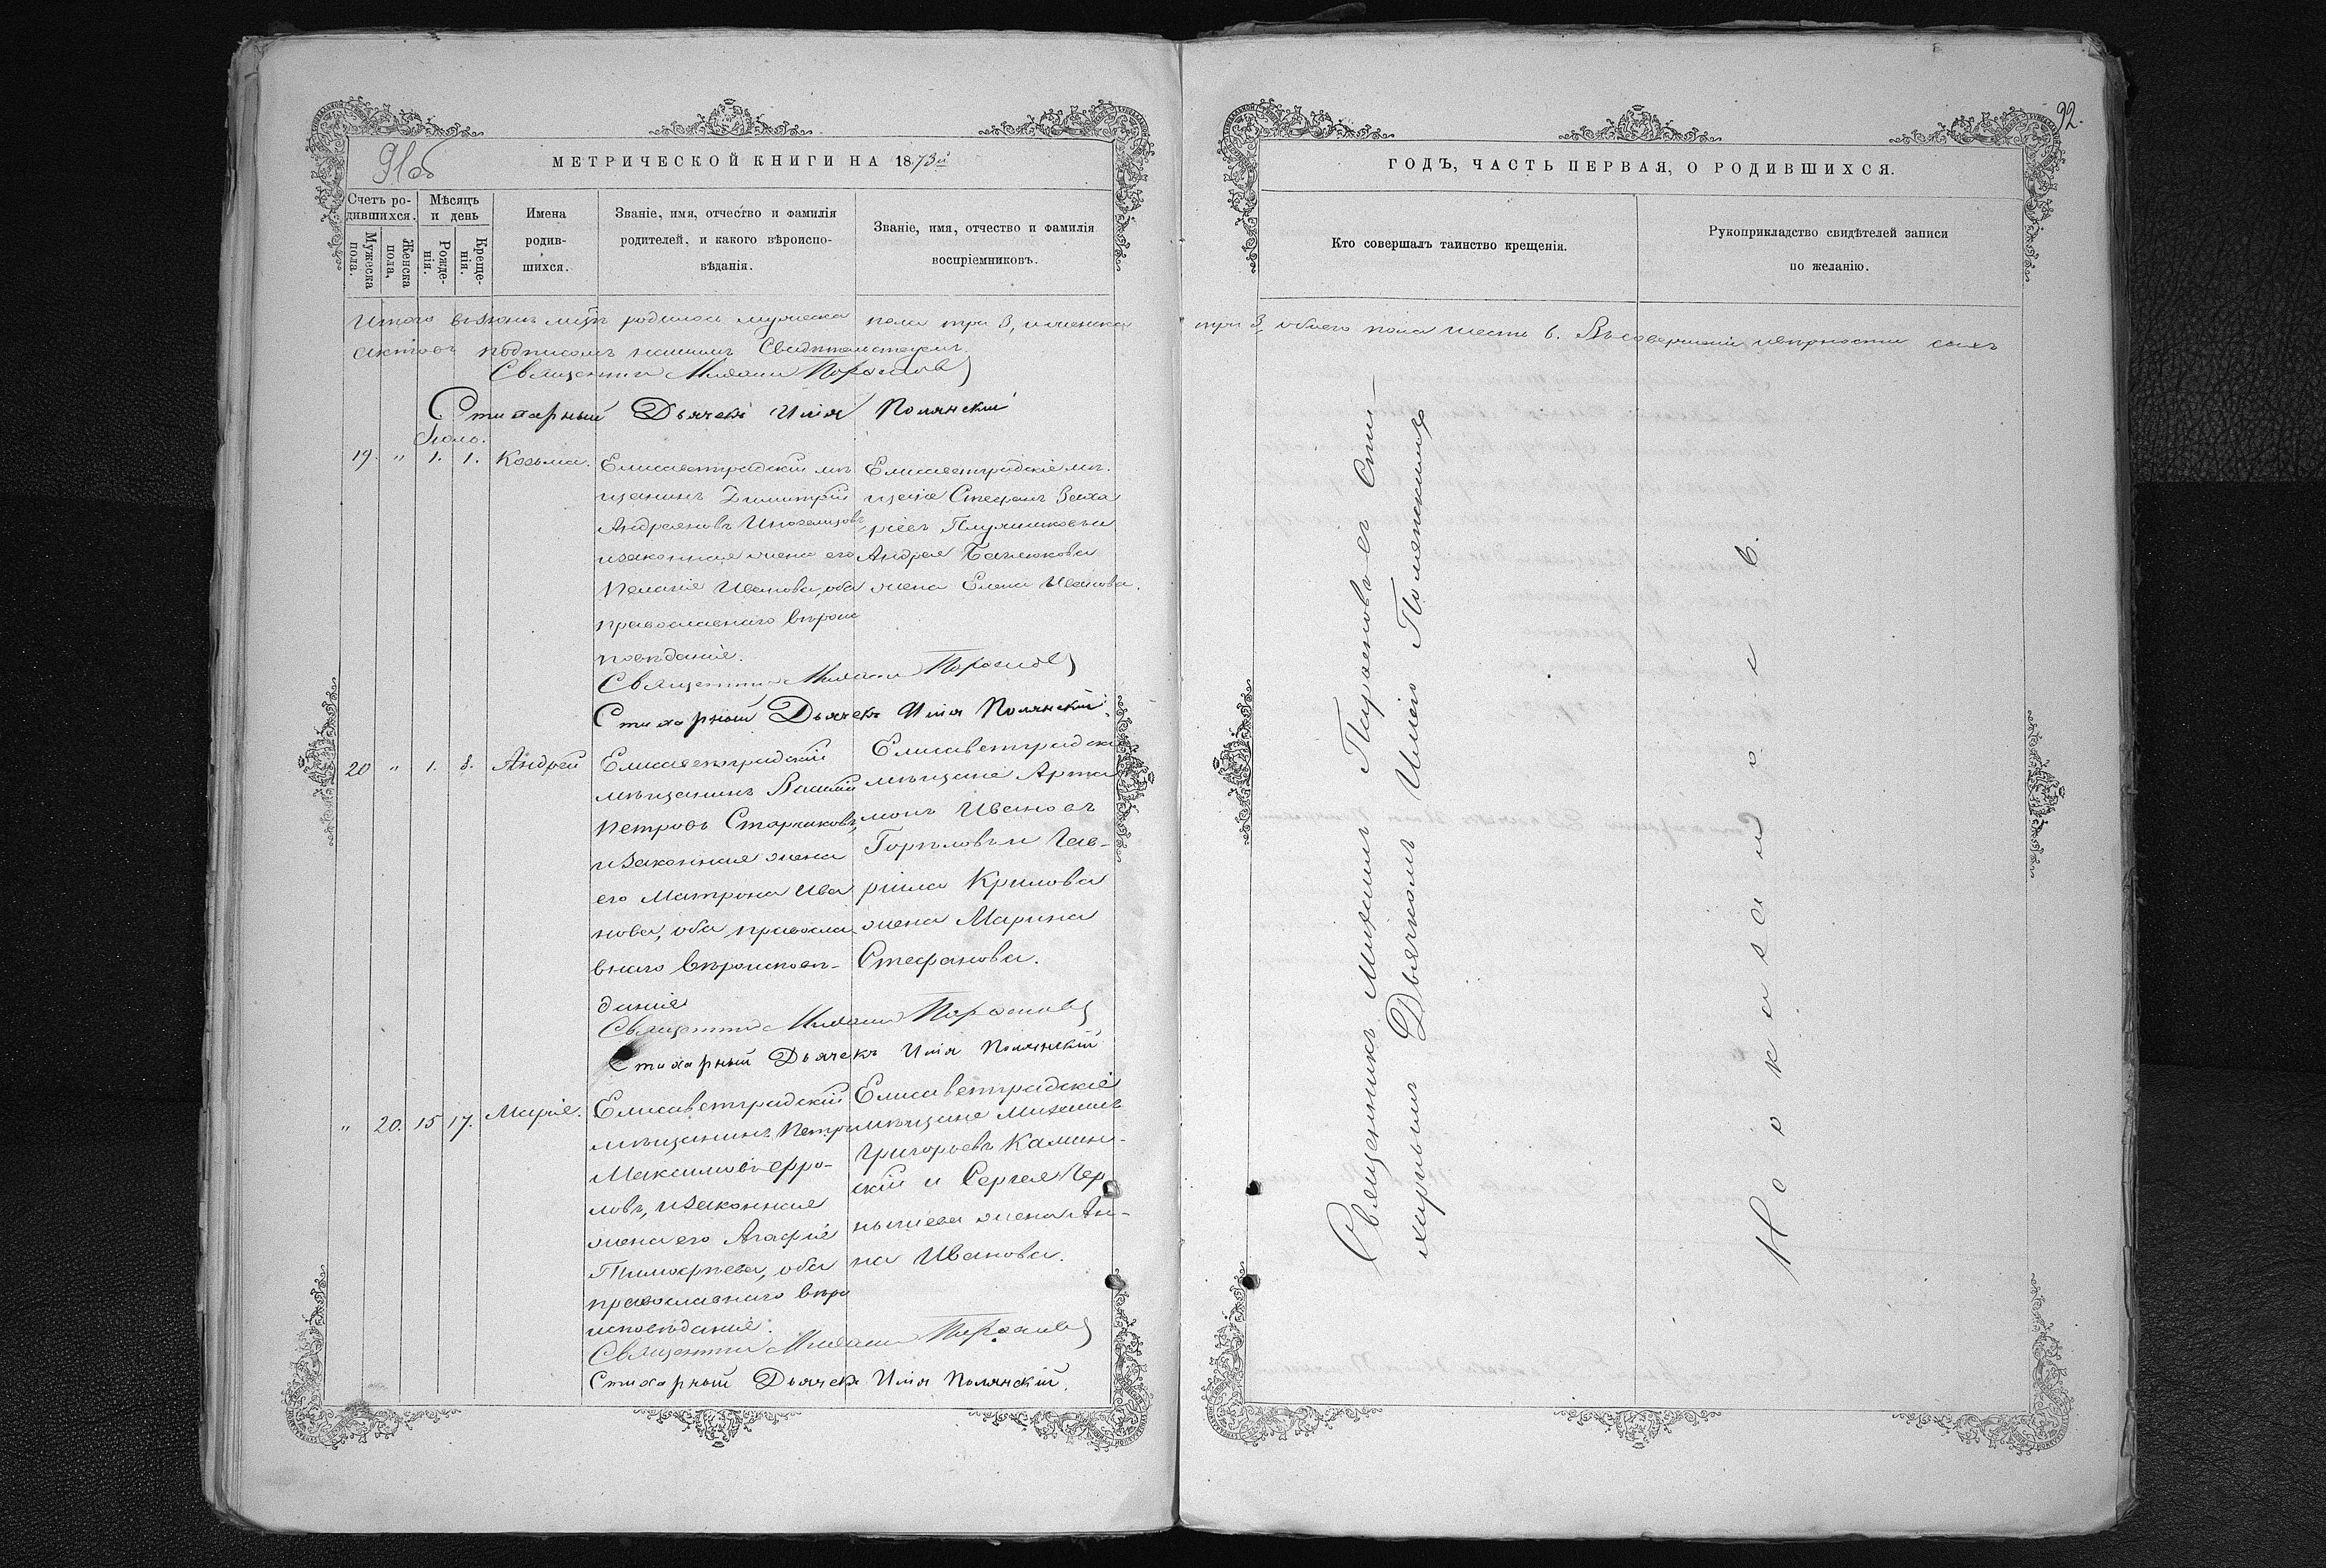 91об
МЕТРИЧЕСКОЙ КНИГИ НА 1873й
Счетъ ро-
дившихся.
Мужеска
пола.
Женска
пола.
Мѣсяцъ
и день
Рожде-
нія.
Креще-
нія.
Имена
родив-
шихся.
Званіе, имя, отчество и фамилія
родителей, и какого вѣроиспо-
вѣданія.
Званіе, имя, отчество и фамилія
воспріемниковъ.
Итого въ родилось мужеска пола три 3, и женска
актовъ подписомъ нашимъ Свидѣтельствуемъ
Священникъ Михаилъ
Стихарный Дьячекъ Илія Полянскій
Іюль.
19. " 1. 1. Козьма.
Елисаветградскій мѣ
щанинъ Димитрій
Андреяновъ
и законная жена его
Пелагія Иванова, оба
православнаго вѣрои
повѣданія.
Елисаветградскіе мѣ.
щане Стефанъ Заха
ріевъ и
Андрея
жена Елена Иванова.
Священникъ Михаилъ
Стихарный Дьячекъ Илія Полянскій.
20 " 1. 8. Андрей
Елисаветградскій
мѣщанинъ
Петровъ Старчиковъ,
и законная жена
его Матрона Ива
нова, оба правосла
внаго вѣроисповѣ-
данія
Елисаветградскі
мѣщане Арта
монъ Ивановъ
Горѣловъ и Гав-
ріила Крилова
жена Марина
Стефанова.
Священникъ Михаилъ
Стихарный Дьячекъ Илія Полянскій
" 20. 15 17. Марія.
Елисаветградскій
мѣщанинъ Петръ
Максимовъ Фро-
ловъ, и законная
жена его Агафія
Тимофѣева, оба
православнаго вѣро
исповѣданія.
Елисаветградскіе
мѣщане Михаилъ
Григорьевъ Камин-
скій и Сергея Чер
нышева жена Ан-
на Иванова.
Священникъ Михаилъ
Стихарный Дьячекъ Илія Полянскій.
92.
ГОДЪ, ЧАСТЬ ПЕРВАЯ, О РОДИВШИХСЯ.
Кто совершалъ таинство крещенія.
Рукоприкладство свидѣтелей записи
по желанію.
три 3, обоего пола шесть 6. сихъ
Священникъ Михаилъ съ Сти-
харнымъ Дьячкомъ Иліею Полянскимъ